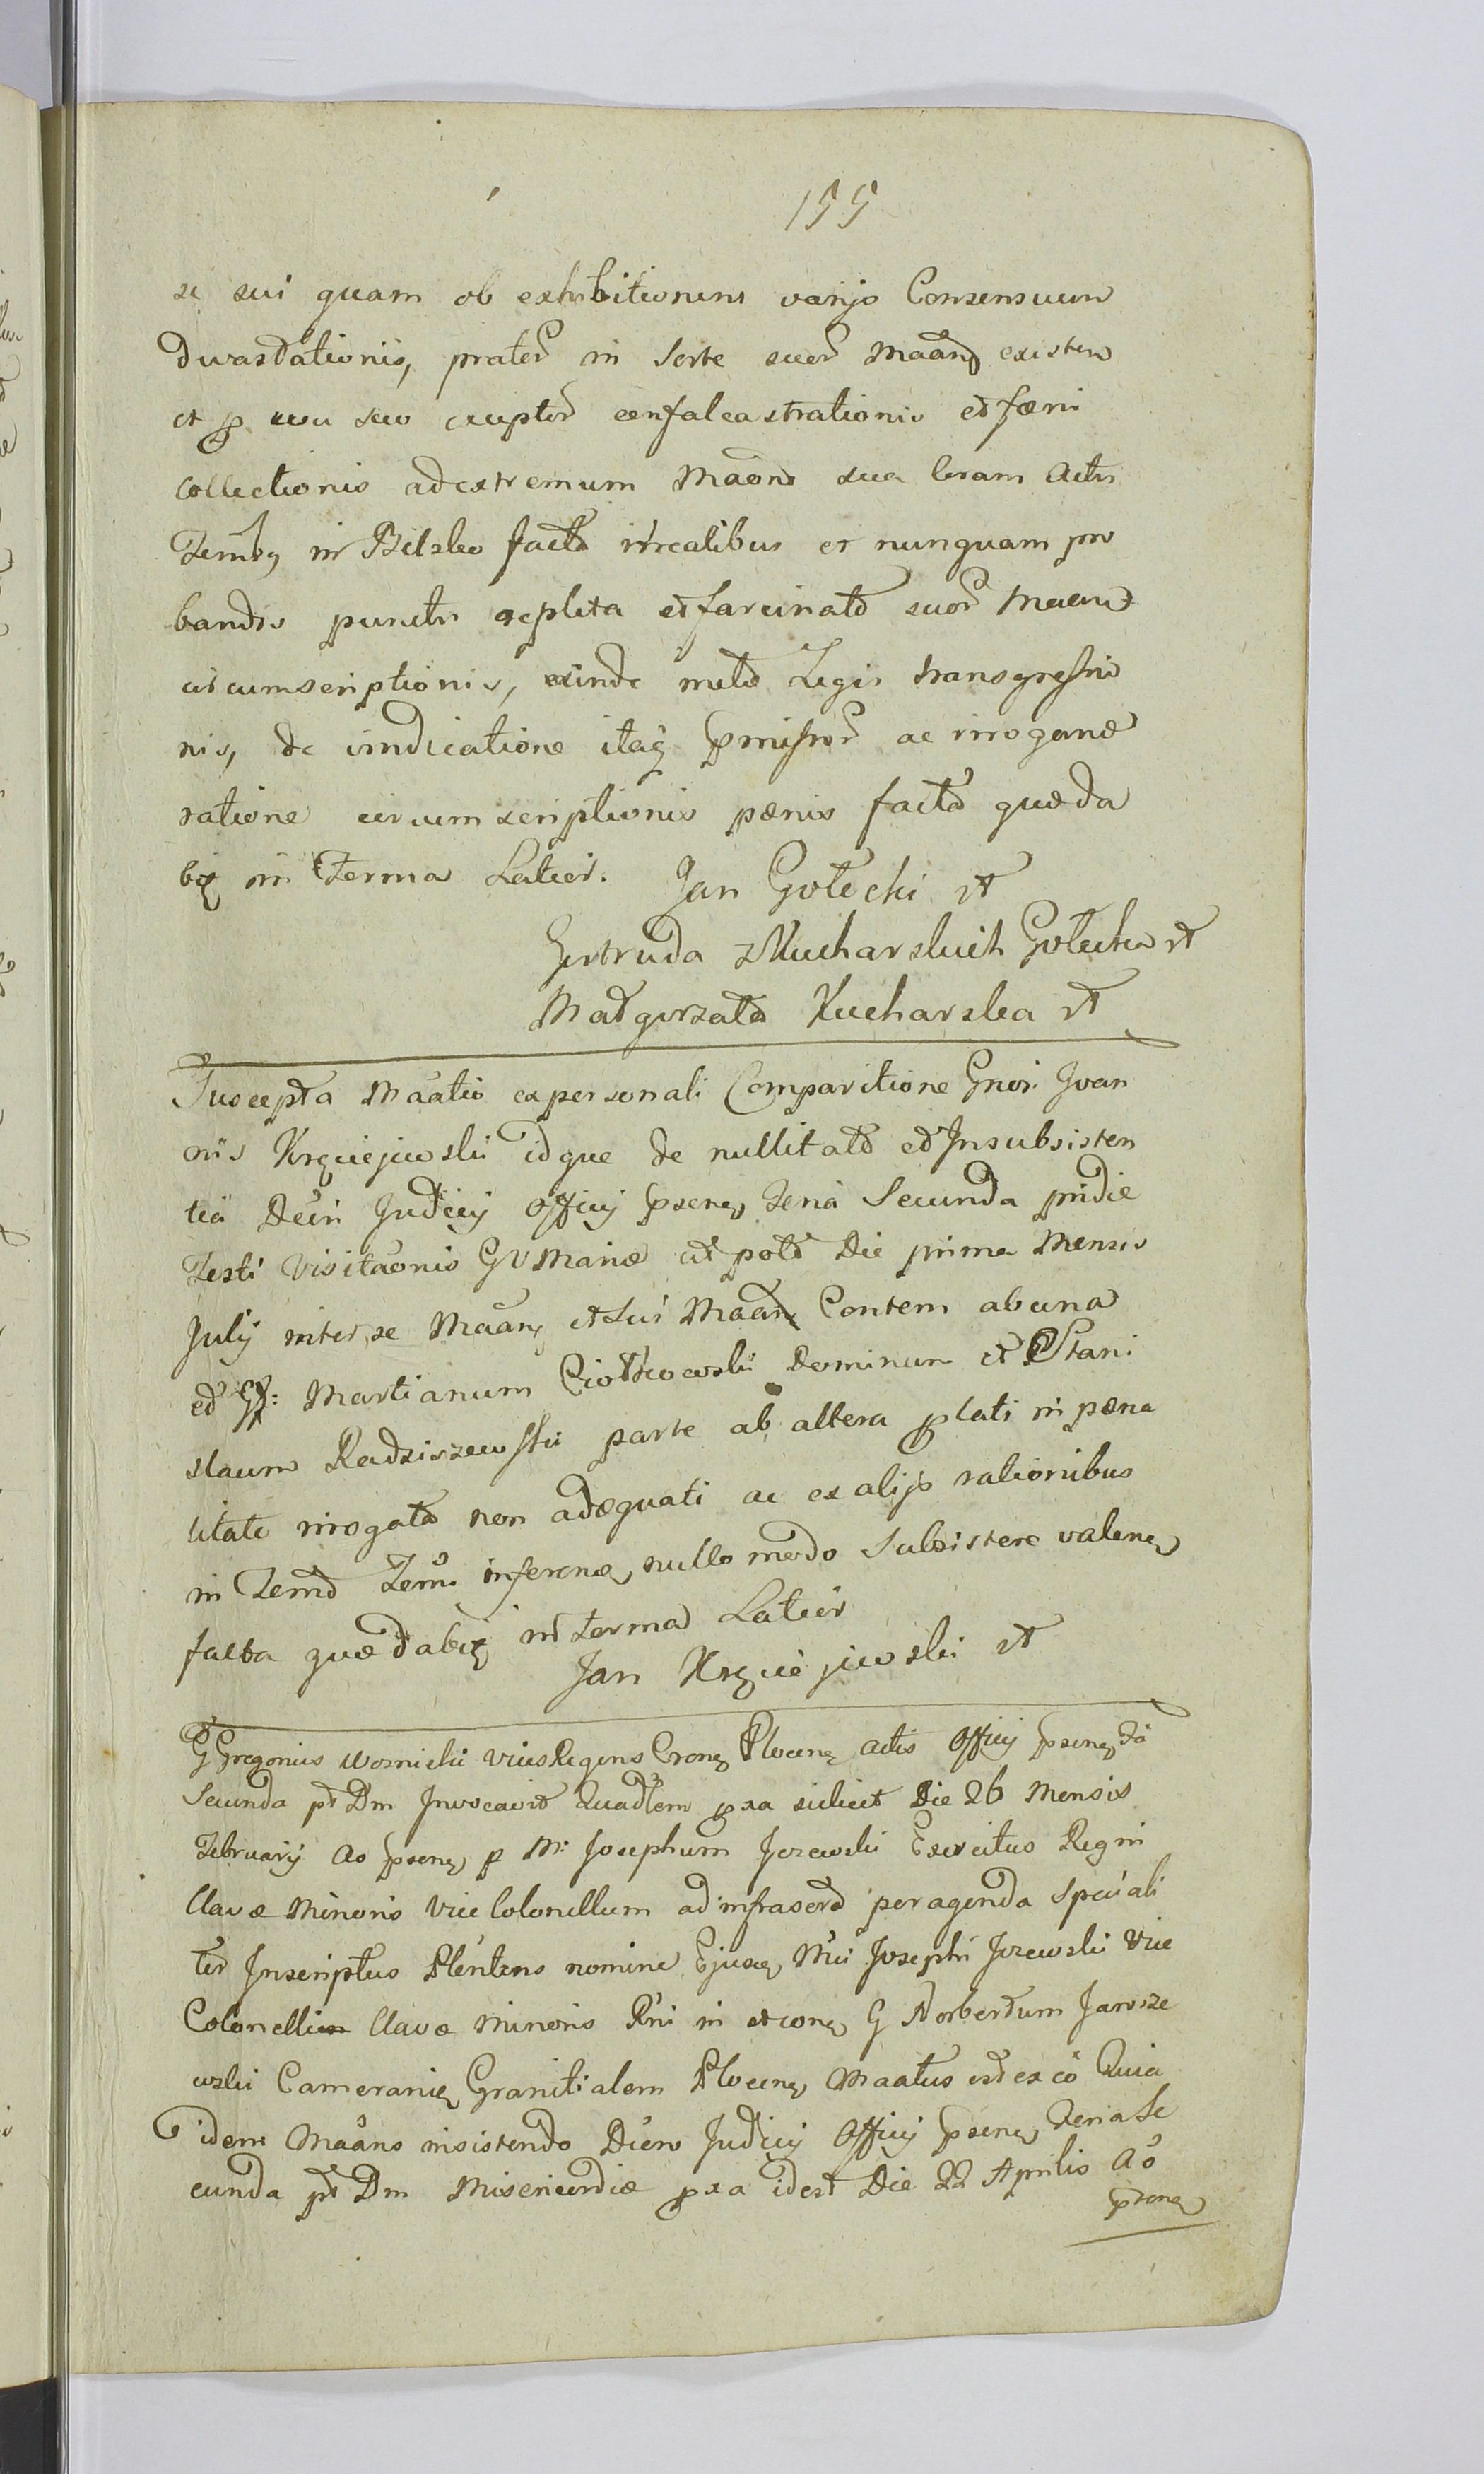 155
se sui quam ob exhibitionem varijs Consensuum
Devastationis, prater in Sorte suor Maan existen
et p usu suo exceptor cenfalcastrationis et fæni
Collectionis ad extremum Maon sua coram Actis
Temby in Bielsko facta irrealibus et nunquam pro
bandis punctis repleta et farcinata suor Maan
circumscriptionis, exinde meta Legis transgressio
nis, de vindicatione itaq pmissor ac irrogand
ratione circumscriptionis pænis facta quæ da
biq in Termo Latior. Jan Gołecki rt
Gertruda z Kucharskich Gołecka rt
Małgorzata Kucharska rt
Suscepta Maatio ex personali Comparitione Gnosi Joan
nis Krzciejewski idque de nullitate et Insubsisten
tia Decri Judicij Officij pseng Feria Secunda pridie
Festi Visitaonis G V Mariæ ut pote Die prima Mensis
July inter se Maang et Sui Maan Contem ab una
et G: Martianum Ciotkowski Dominum et Stani
slaum Radziszewski parte ab altera plati in pæna
litate irrogata non adæquati ac ex alijs rationibus
in Temd Temo inferend, nullo modo Subsistere valeng
facta quæ dabiq in Termo Latior
Jan Krzciejewski rt
G Gregorius Woznicki Vices Regens Crong Ploceng Actis Officij pseng Fa
Secunda pt Dm Invocavit Quadlem pxa scilicet Die 26 Mensis
February Ao pseng p M: Josephum Jezewski Exercitus Regni
Clavæ Minoris Vice Colonellum ad infrascrd peragenda Speciali
ter Inscriptus Plentens nomine Ejusq Mci Josephi Jezewski Vice
Colonelli Clavæ Minoris Rni in et cong G Norbertum Jarosze
wski Camerariu Granitialem Ploceng Maatus est ex eo Quia
idem Maans insistendo Decro Judicij Officij pseng Feria Se
cunda pt Dm Misericordiæ pxa idest Die 22 Aprilis Ao
pseng